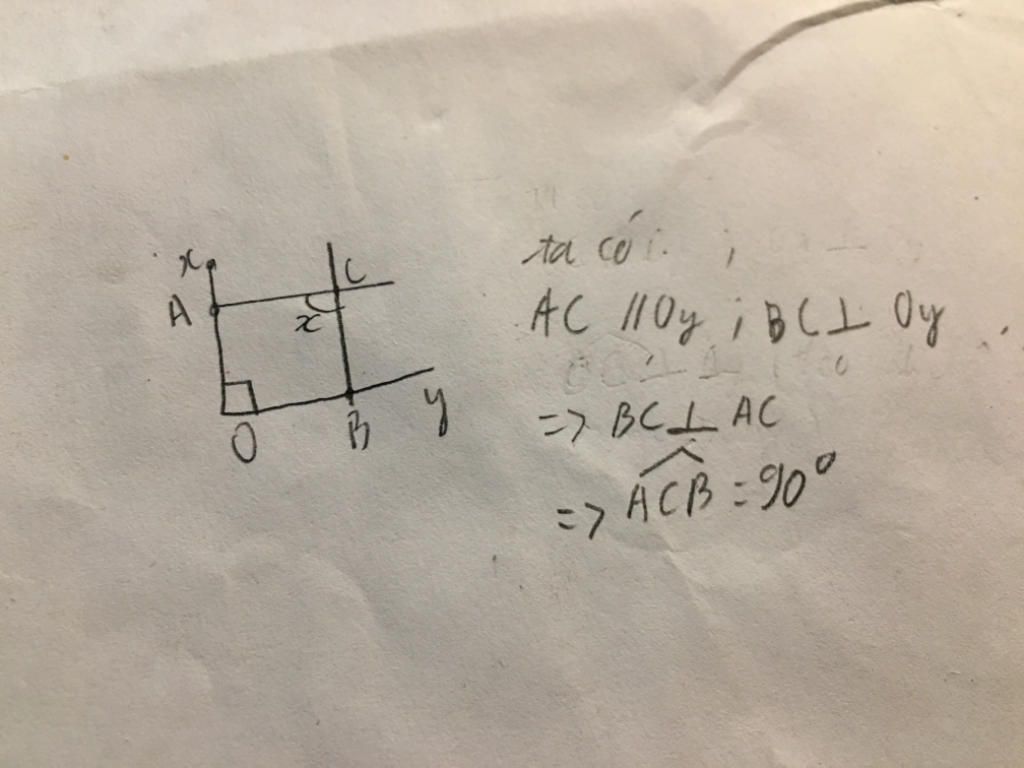 x
A
C
x
O
B
y
ta có: ;
AC // Oy ; BC ⊥ Oy .
=> BC ⊥ AC
=> \widehat{ACB} = 90°